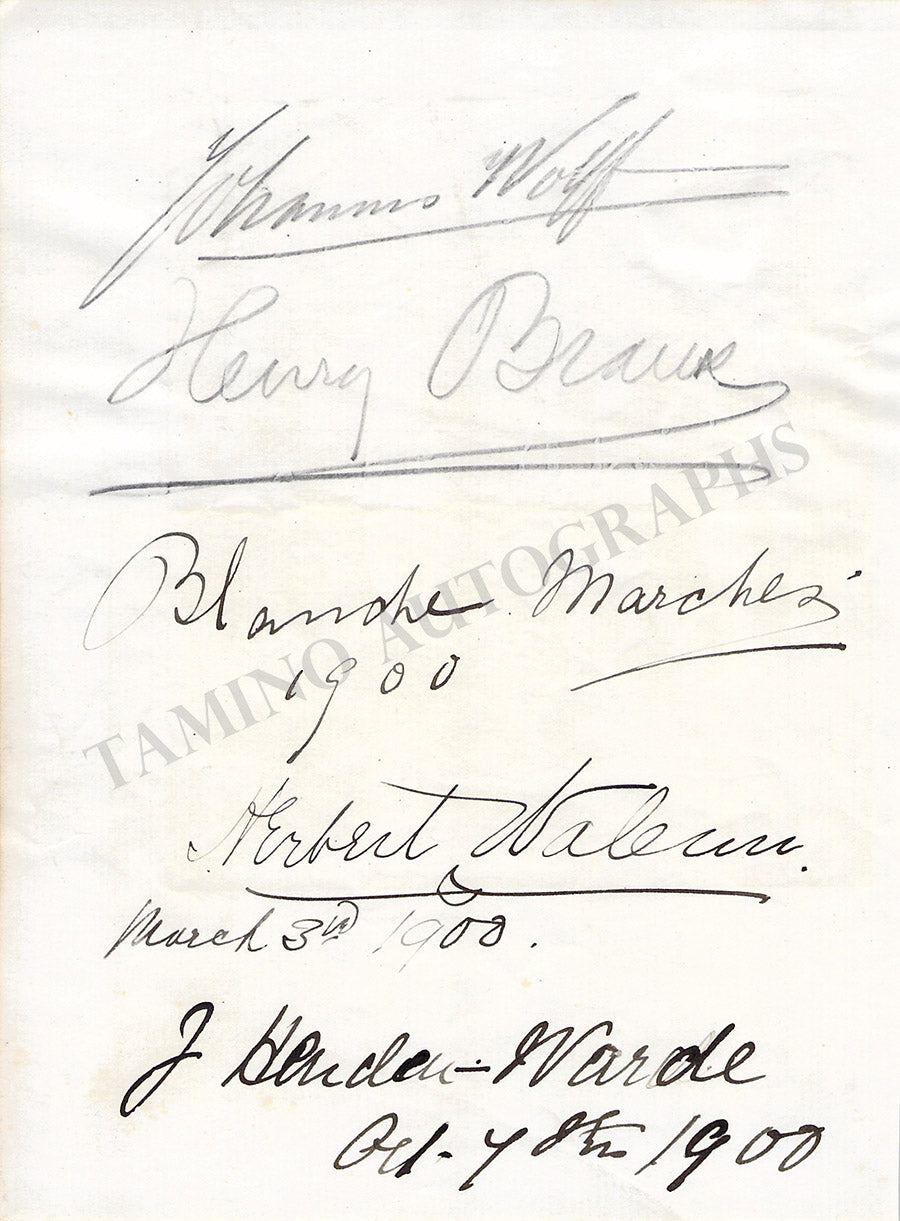 Johannes Wolff
Henry
Blanche Marchesi
1900
TAMINO AUTOGRAPHS
Herbert Walenn.
March 3rd 1900.
J Henden-Warde
Oct. 7th 1900